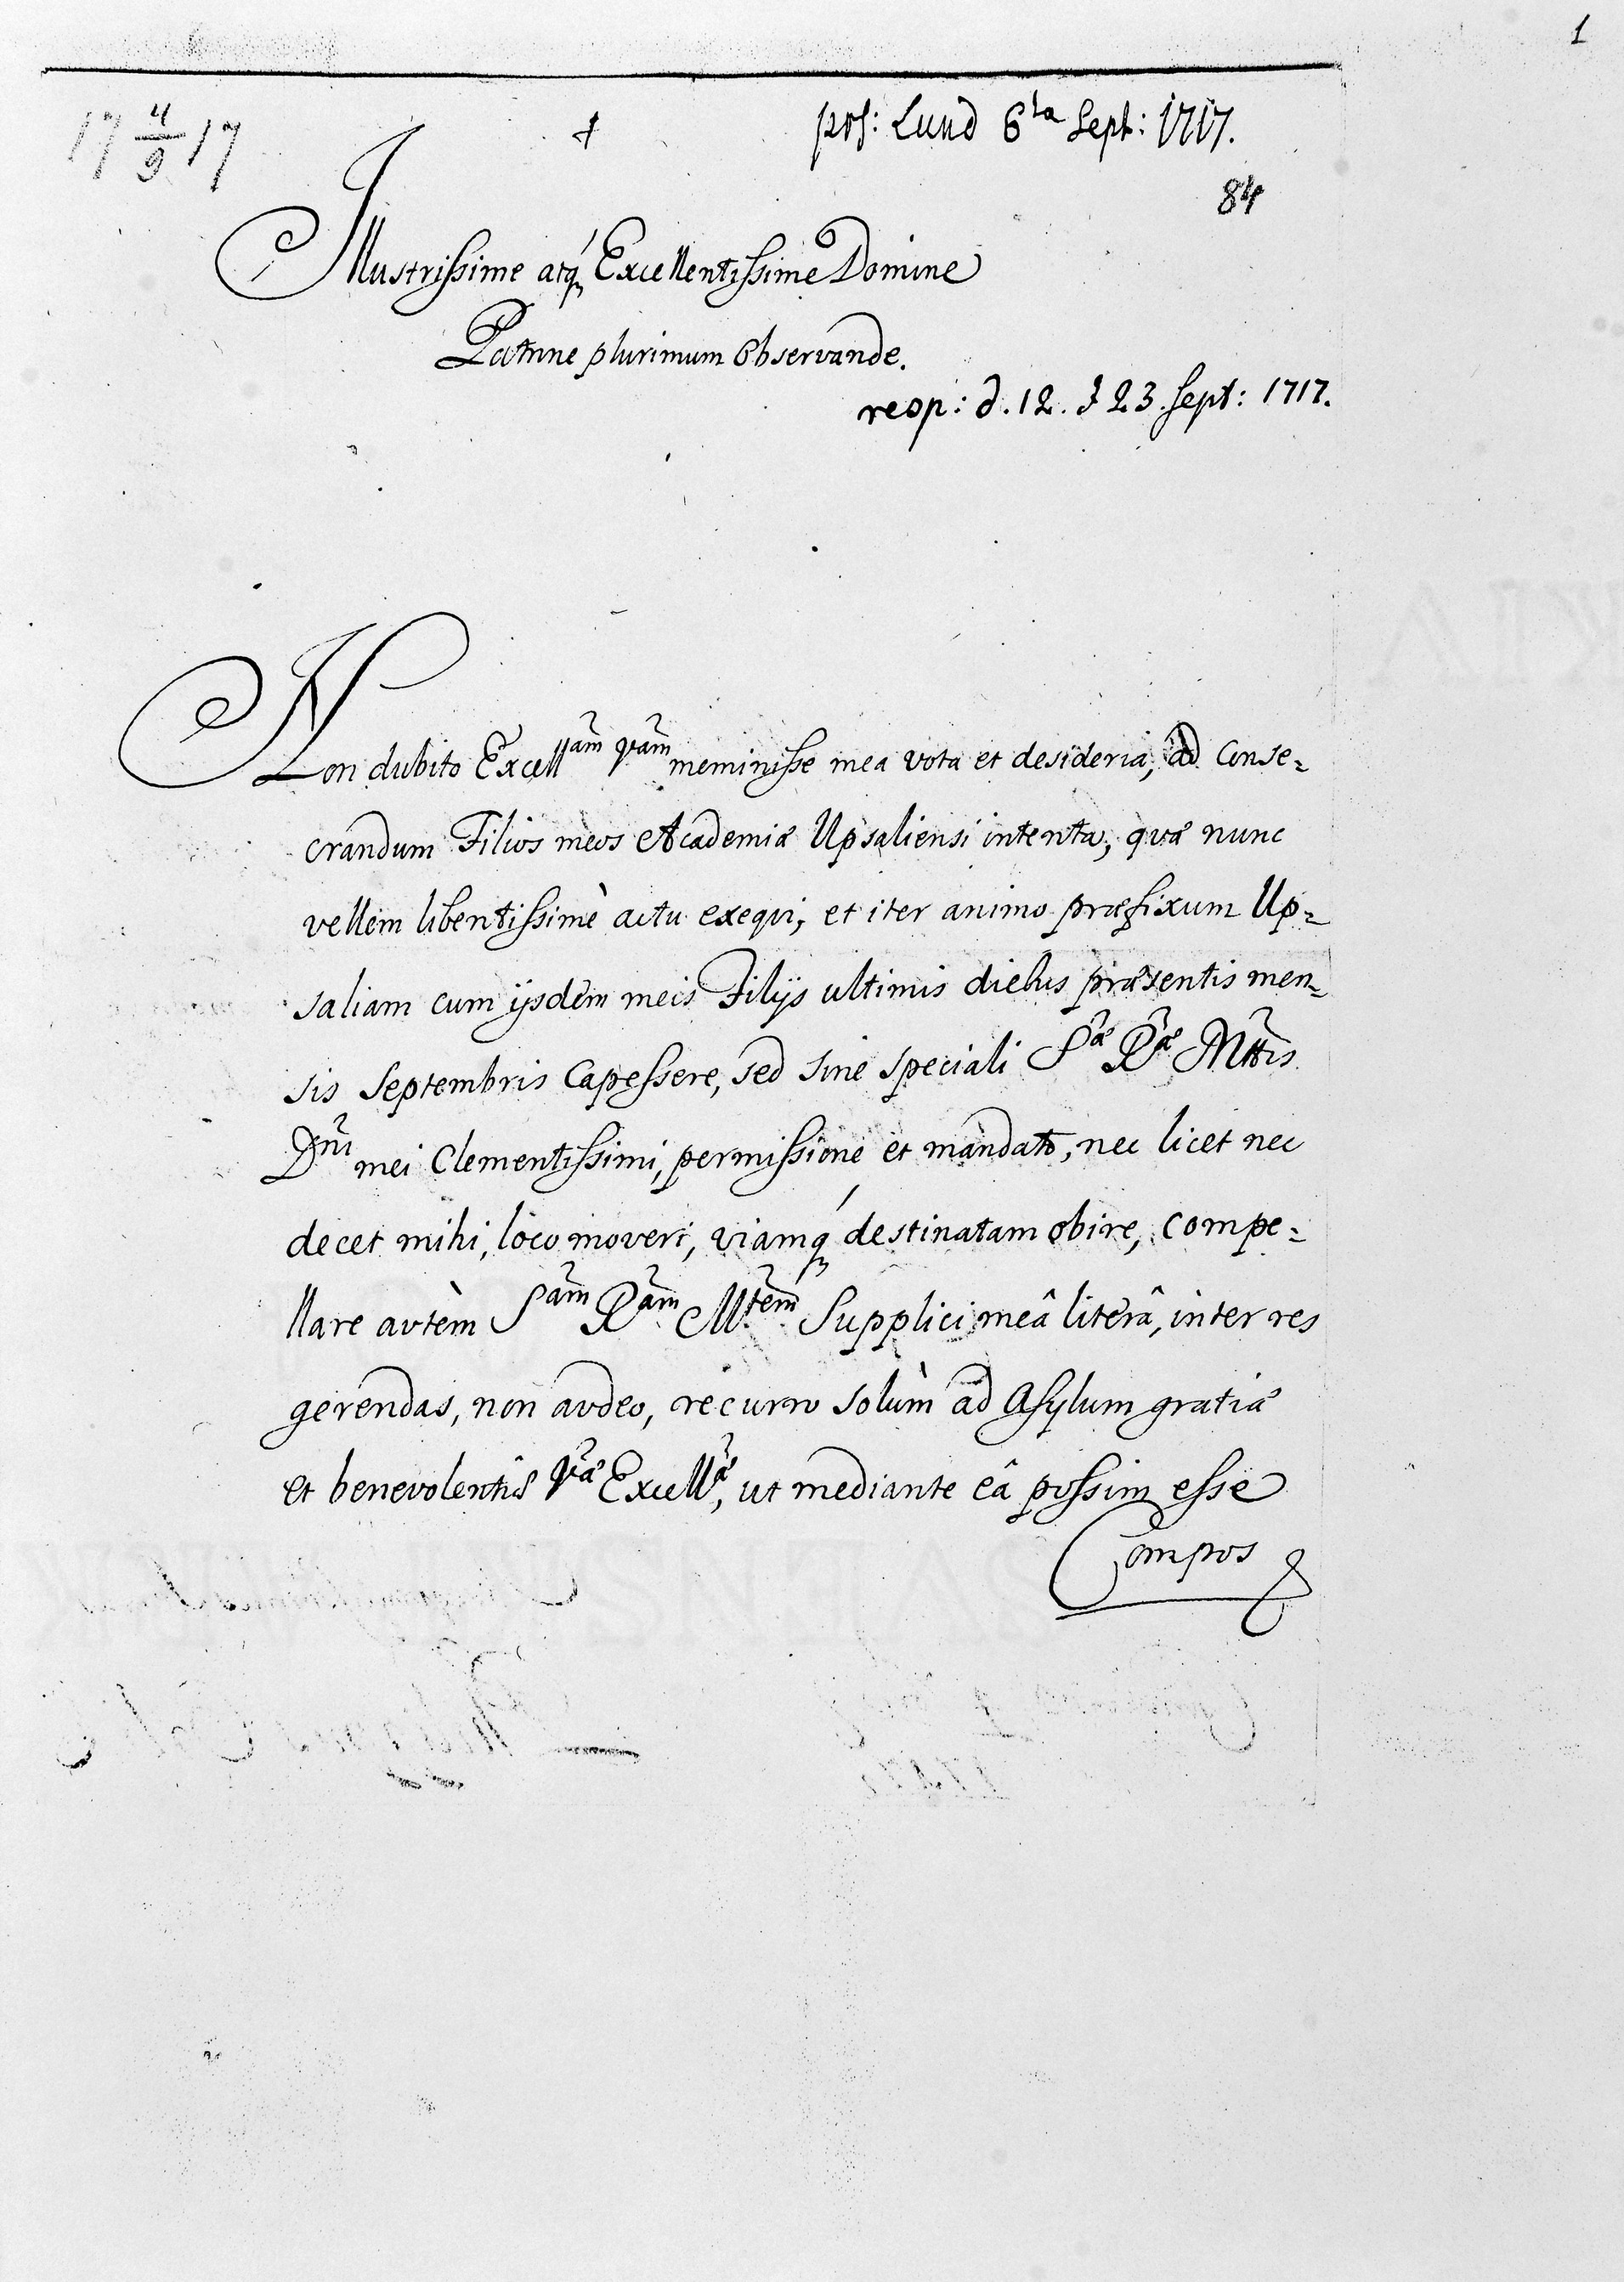 1
17 4/9 17
†
prs: Lund 6ta Sept: 1717.
84
Illustrissime atq́ Excellentissime Domine
Patrone plurimum Observande.
resp: d. 12. & 23. Sept: 1717.
Non dubito Excellam Vram meminisse mea vota et desideria, ad Conse=
crandum Filios meos Academiæ Upsaliensi intenta, quæ nunc
vellem libentissimè actu exequi, et iter animo præfixum Up=
saliam cum ijsdem meis Filijs ultimis diebus præsentis men=
sis Septembris Capessere, sed sine speciali Sæ Ræ Mttis
Dni mei Clementissimi, permissione et mandato, nec licet nec
decet mihi, loco moveri, viamq́ destinatam obire, compe=
llare autèm Sam Ram Mtem Supplici meâ literâ, inter res
gerendas, non audeo, recurro solùm ad Asylum gratiæ
et benevolentiæ Væ Excellæ, ut mediante eâ possim esse
Compos